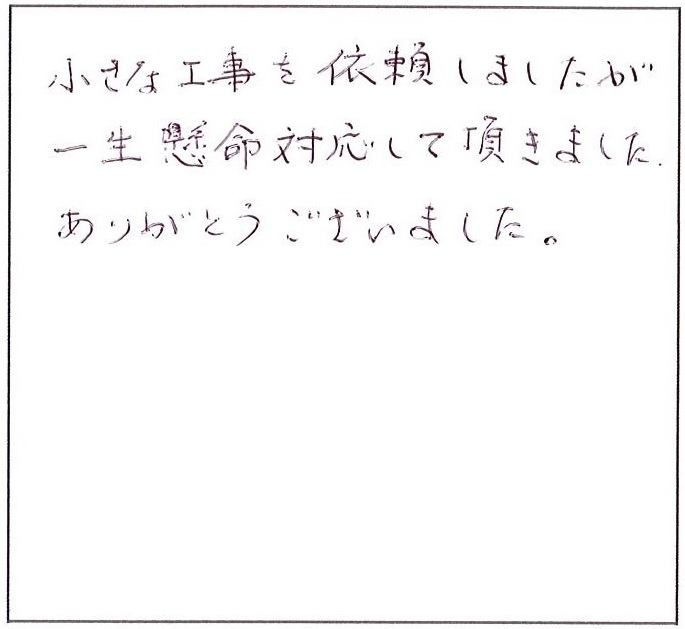 小さな工事を依頼しましたが
一生懸命対応して頂きました.
ありがとうございました。